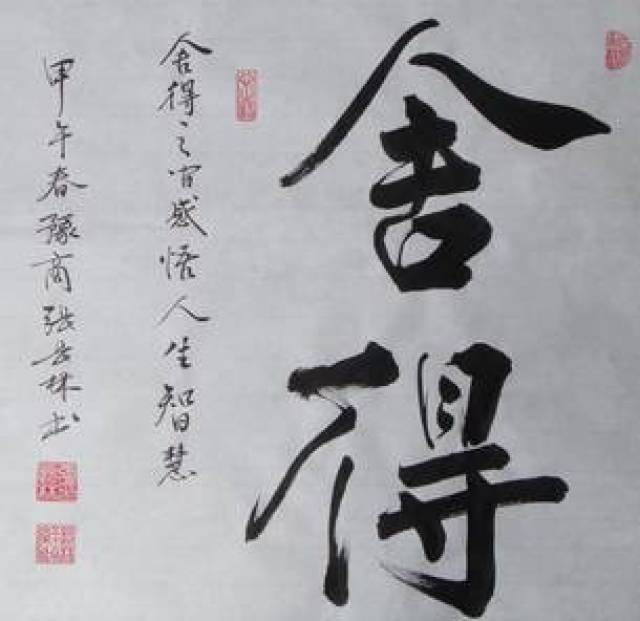 舍得
舍得之间感悟人生智慧
甲午春豫商张吉林书